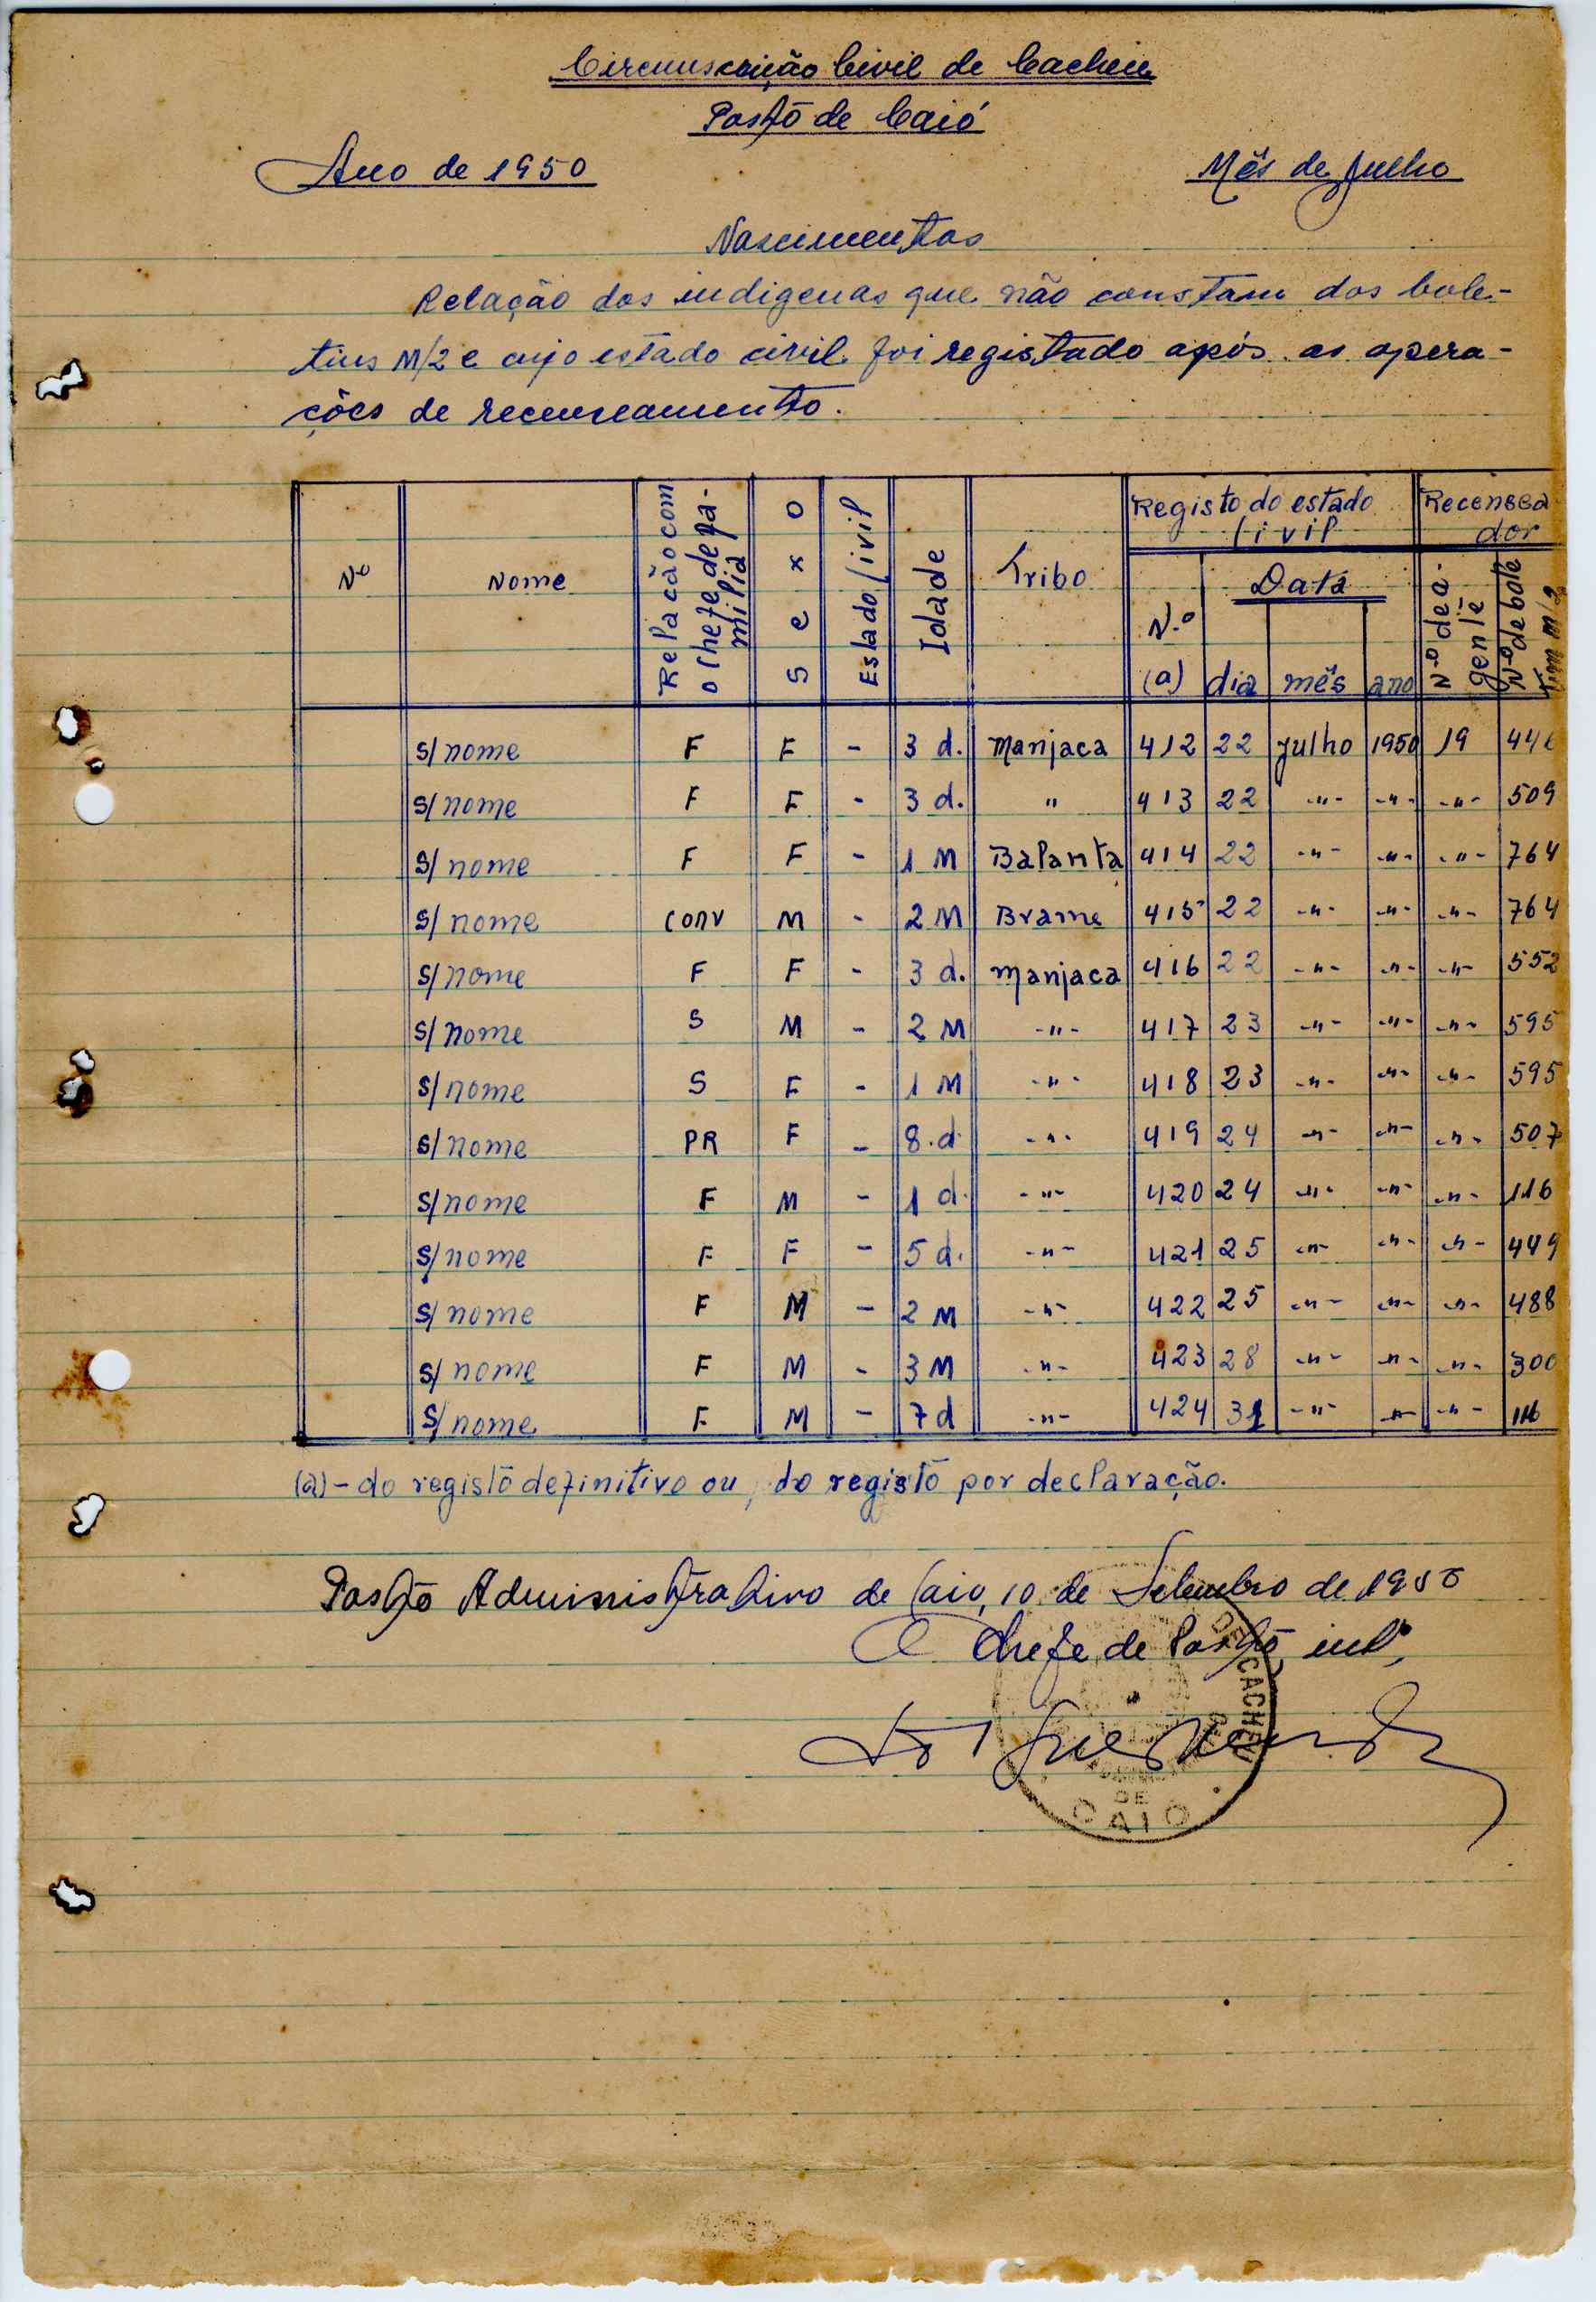 Circunscrição Civil de Cacheu
Posto de Caió
Ano de 1950 Mês de Julho
Nascimentos
Relação dos indigenas que não constam dos bole-
tins M/2 e cujo estado civil foi registado após as opera-
ções de recenseamento.
Nº Nome Relacão com o chefe de fa-milia Sexo Estado Civil Idade Tribo Registo do estado Civil Recensea dor
Nº (a) Data dia mês ano Nº de a-gente Nº de bole tim M/2
S/ nome F F - 3 d. Manjaca 412 22 Julho 1950 19
S/ nome F F - 3 d. " 413 22 -"- -"- -"- 509
S/ nome F F - 1 M Balanta 414 22 -"- -"- -"- 764
S/ nome conv M - 2 M Brame 415 22 -"- -"- -"- 764
S/ nome F F - 3 d. Manjaca 416 22 -"- -"- -"- 552
S/ nome S M - 2 M -"- 417 23 -"- -"- -"- 595
S/ nome S F - 1 M -"- 418 23 -"- -"- -"- 595
S/ nome PR F - 8.d -"- 419 24 -"- -"- -"- 507
S/ nome F M - 1 d. -"- 420 24 -"- -"- -"- 116
S/ nome F F - 5 d. -"- 421 25 -"- -"- -"- 449
S/ nome F M - 2 M -"- 422 25 -"- -"- -"- 488
S/ nome F M - 3 M -"- 423 28 -"- -"- -"- 300
S/ nome F M - 7 d -"- 424 31 -"- -"- -"- 116
(a) - do registo definitivo ou, do registo por declaração.
Posto Administrativo de Caio, 10 de Setembro de 1950
O Chefe de Posto intº,
DE CACHEU
DE
CAIO